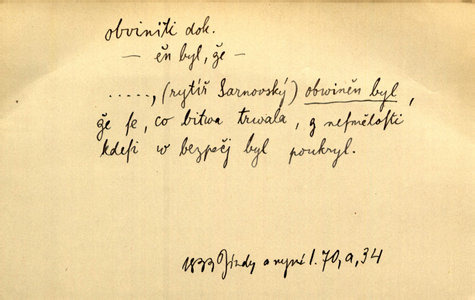 obviniti dok.
— ěn byl, že —
....., (rytíř Sarnovský) obwiněn byl,
že se, co bitwa trwala, z nesmělosti
kdesi w bezpečj byl poukryl.
1833 Jindy a nynj l. 70, a, 34